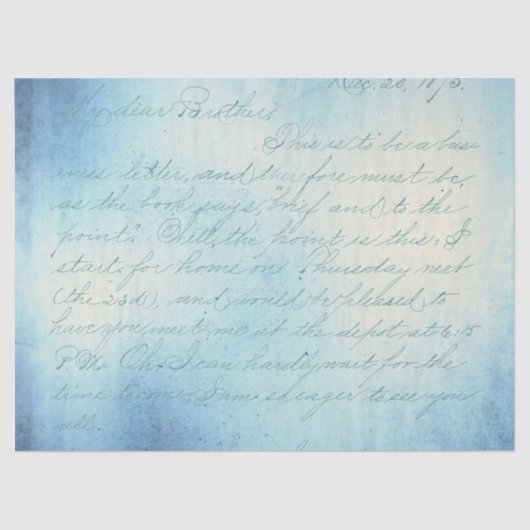 Dec. 20, 1875.
My dear Brother,
This is to be a busi
ness letter, and therefore must be,
as the book says, "brief and to the
point". Well, the point is this: I
start for home on Thursday next
(the 23d), and would be pleased to
have you meet me at the depot, at 6:15
P.M. Oh, I can hardly wait for the
time to come, I am so eager to see you
all.